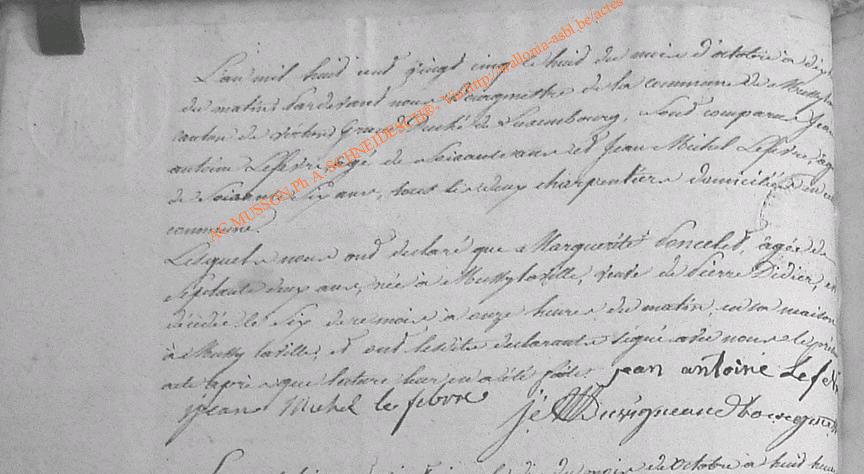 L'an mil huit cent vingt cinq le huit du mois d'octobre à dix
du matin pardevant nous Bourgmettre de la commune de Mussy la
canton de virton Grand Duché de Luxembourg, sont comparus Jean
antoine Lefevre, agé de Soixante ans et Jean Michel Lefevre, agé
de Soixante Six ans, tous les deux charpentiers domiciliés en
commune.
Lesquels nous ont déclaré que Marguerite Poncelet, âgée de
Septante deux ans, née à Mussy laville, veuve de Pierre Didier, est
décédée le Six de ce mois à onze heures du matin, en sa maison
à Mussy laville, et ont lesdits declarants signé avec nous le présent
acte après que lecture leur en a été faite. jean antoine Lefe
jean Michel lefebvre J: Duvigneaud bourgm
du mois de octobre à huit heure
AC MUSSON Ph A. SCHNEIDESCH © - Via http://wallonia-asbl.be/actes